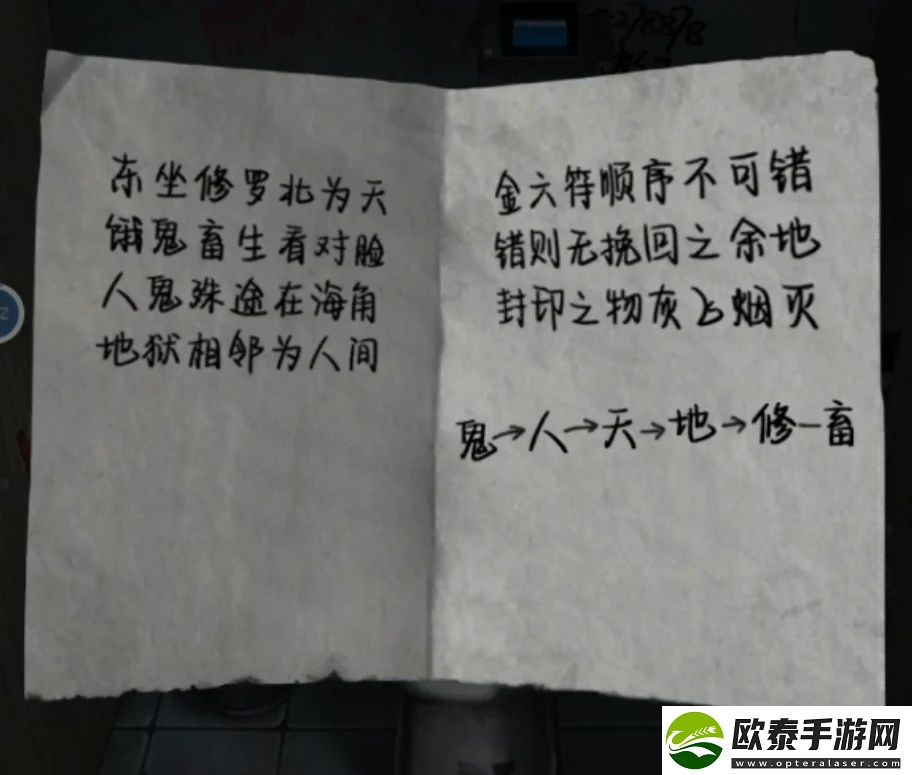 东坐修罗北为天
饿鬼畜生看对脸
人鬼殊途在海角
地狱相邻为人间
金六符顺序不可错
错则无挽回之余地
封印之物灰飞烟灭
鬼→人→天→地→修—畜
欧泰手游网
www.opteralaser.com